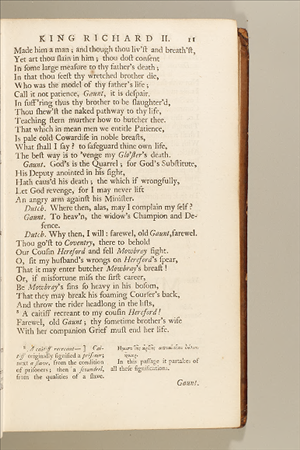 KING RICHARD II. 11
Made him a man; and though thou liv'st and breath'st,
Yet art thou slain in him; thou dost consent
In some large measure to thy father's death;
In that thou seest thy wretched brother die,
Who was the model of thy father's life;
Call it not patience, Gaunt, it is despair.
In suff'ring thus thy brother to be slaughter'd,
Thou shew'st the naked pathway to thy life,
Teaching stern murther how to butcher thee.
That which in mean men we entitle Patience,
Is pale cold Cowardise in noble breasts,
What shall I say? to safeguard thine own life,
The best way is to 'venge my Glo'ster's death.
Gaunt. God's is the Quarrel; for God's Substitute,
His Deputy anointed in his sight,
Hath caus'd his death; the which if wrongfully,
Let God revenge, for I may never lift
An angry arm against his Minister.
Dutch. Where then, alas, may I complain my self?
Gaunt. To heav'n, the widow's Champion and De-
fence.
Dutch. Why then, I will: farewel, old Gaunt, farewel.
Thou go'st to Coventry, there to behold
Our Cousin Hereford and fell Mowbray fight.
O, sit my husband's wrongs on Hereford's spear,
That it may enter butcher Mowbray's breast!
Or, if misfortune miss the first career,
Be Mowbray's sins so heavy in his bosom,
That they may break his foaming Courser's back,
And throw the rider headlong in the lists,
A caitiff recreant to my cousin Hereford!
Farewel, old Gaunt; thy sometime brother's wife
With her companion Grief must end her life.
A caitiff recreant—] Cai-
tiff originally signified a prisoner;
next a slave, from the condition
of prisoners; then a scoundrel,
from the qualities of a slave.
In this passage it partakes of
all these significations.
Gaunt.